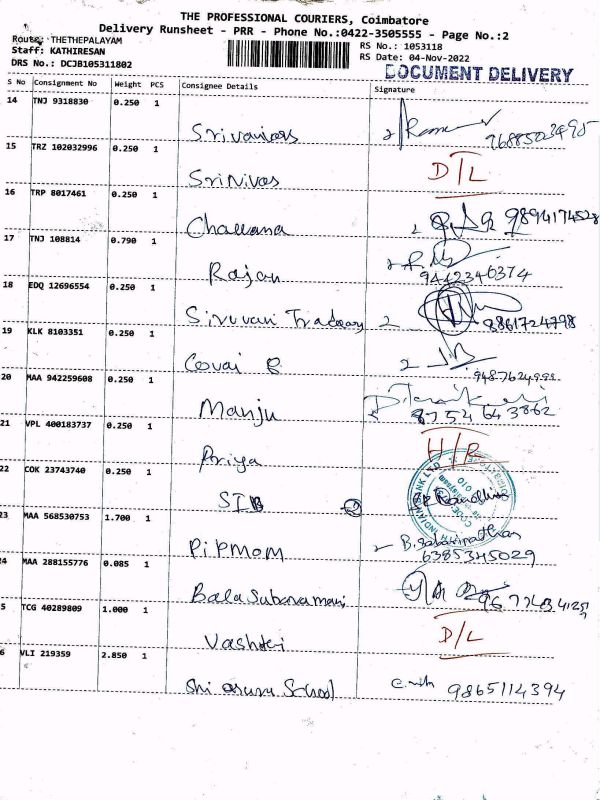 THE PROFESSIONAL COURIERS, Coimbatore
Delivery Runsheet - PRR - Phone No.:0422-3505555 - Page No.:2
Route: THETHEPALAYAM
Staff: KATHIRESAN
DRS No.: DCJB105311802
RS No.: 1053118
RS Date: 04-Nov-2022
DOCUMENT DELIVERY
S No Consignment No Weight PCS Consignee Details Signature
14 TNJ 9318830 0.250 1
15 TRZ 102032996 0.250 1
Srinivas D/L
16 TRP 8017461 0.250 1
9894174528
17 TNJ 108814 0.790 1
Rajan 9442346374
18 EDQ 12696554 0.250 1
Siruvani 8861724798
19 KLK 8103351 0.250 1
Covai
20 MAA 942259608 0.250 1
Manju 8754643862
21 VPL 400183737 0.250 1
Priya H/R
22 COK 23743740 0.250 1
SIB
23 MAA 568530753 1.700 1
PIPMOM B. 6385345029
24 MAA 288155776 0.085 1
5 TCG 40289809 1.000 1
D/L
6 VLI 219359 2.850 1
School 9865114394